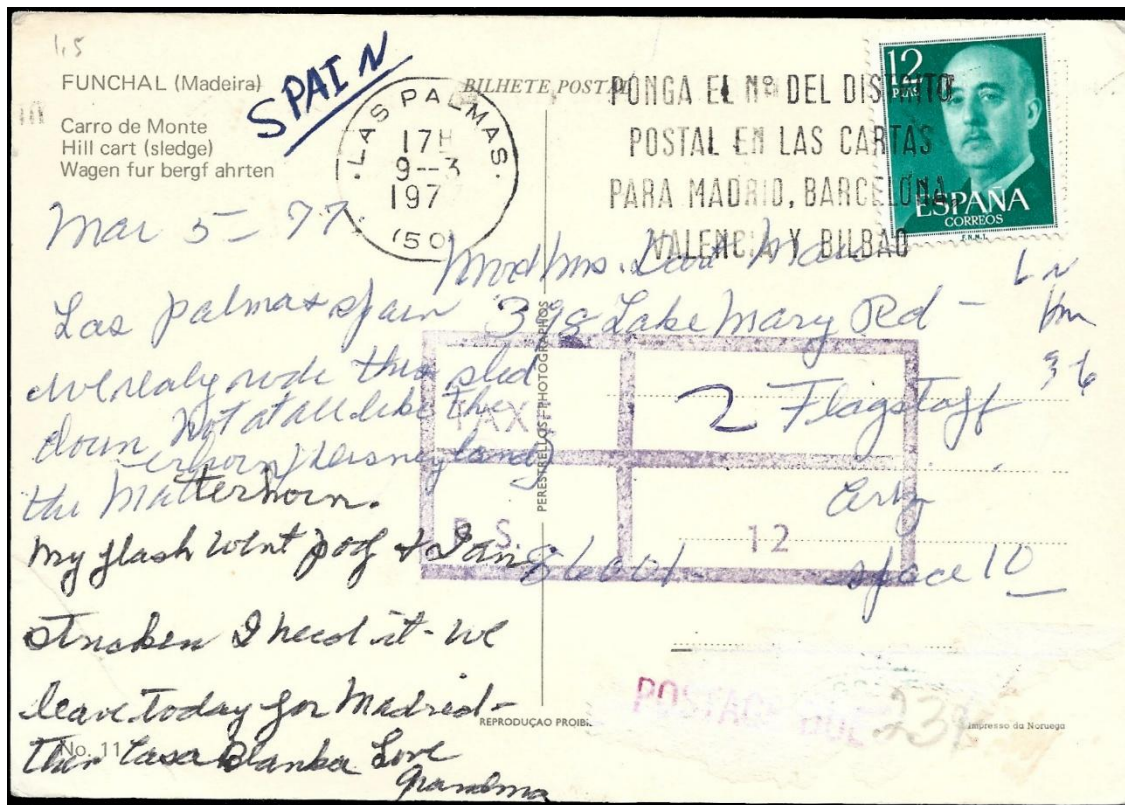 1,5
FUNCHAL (Madeira)
SPAIN
Carro de Monte
Hill cart (sledge)
Wagen fur bergf ahrten
BILHETE POSTAL
LAS PALMAS
17H
9--3
197
(50)
PONGA EL Nº DEL DISTRITO
POSTAL EN LAS CARTAS
PARA MADRID, BARCELONA,
VALENCIA Y BILBAO
12
PTAS
ESPAÑA
CORREOS
F.N.M.T.
Mar 5-77
Las Palmas Spain
we realy rode this sled
down Not at all like the
Disneyland)
the Matterhorn.
My flash went poof & I am
stricken I need it - we
leave today for Madrid -
then Casa Blanka Love
Grandma
Mrs.
398 Lake Mary Rd -
Flagstaff
Ariz
86001 - space 10
TAX
2
P.S.
12
PERESTRELLOS PHOTOGRAPHOS
POSTAGE DUE 23
REPRODUÇAO PROIB
Impresso da Noruega
No. 11